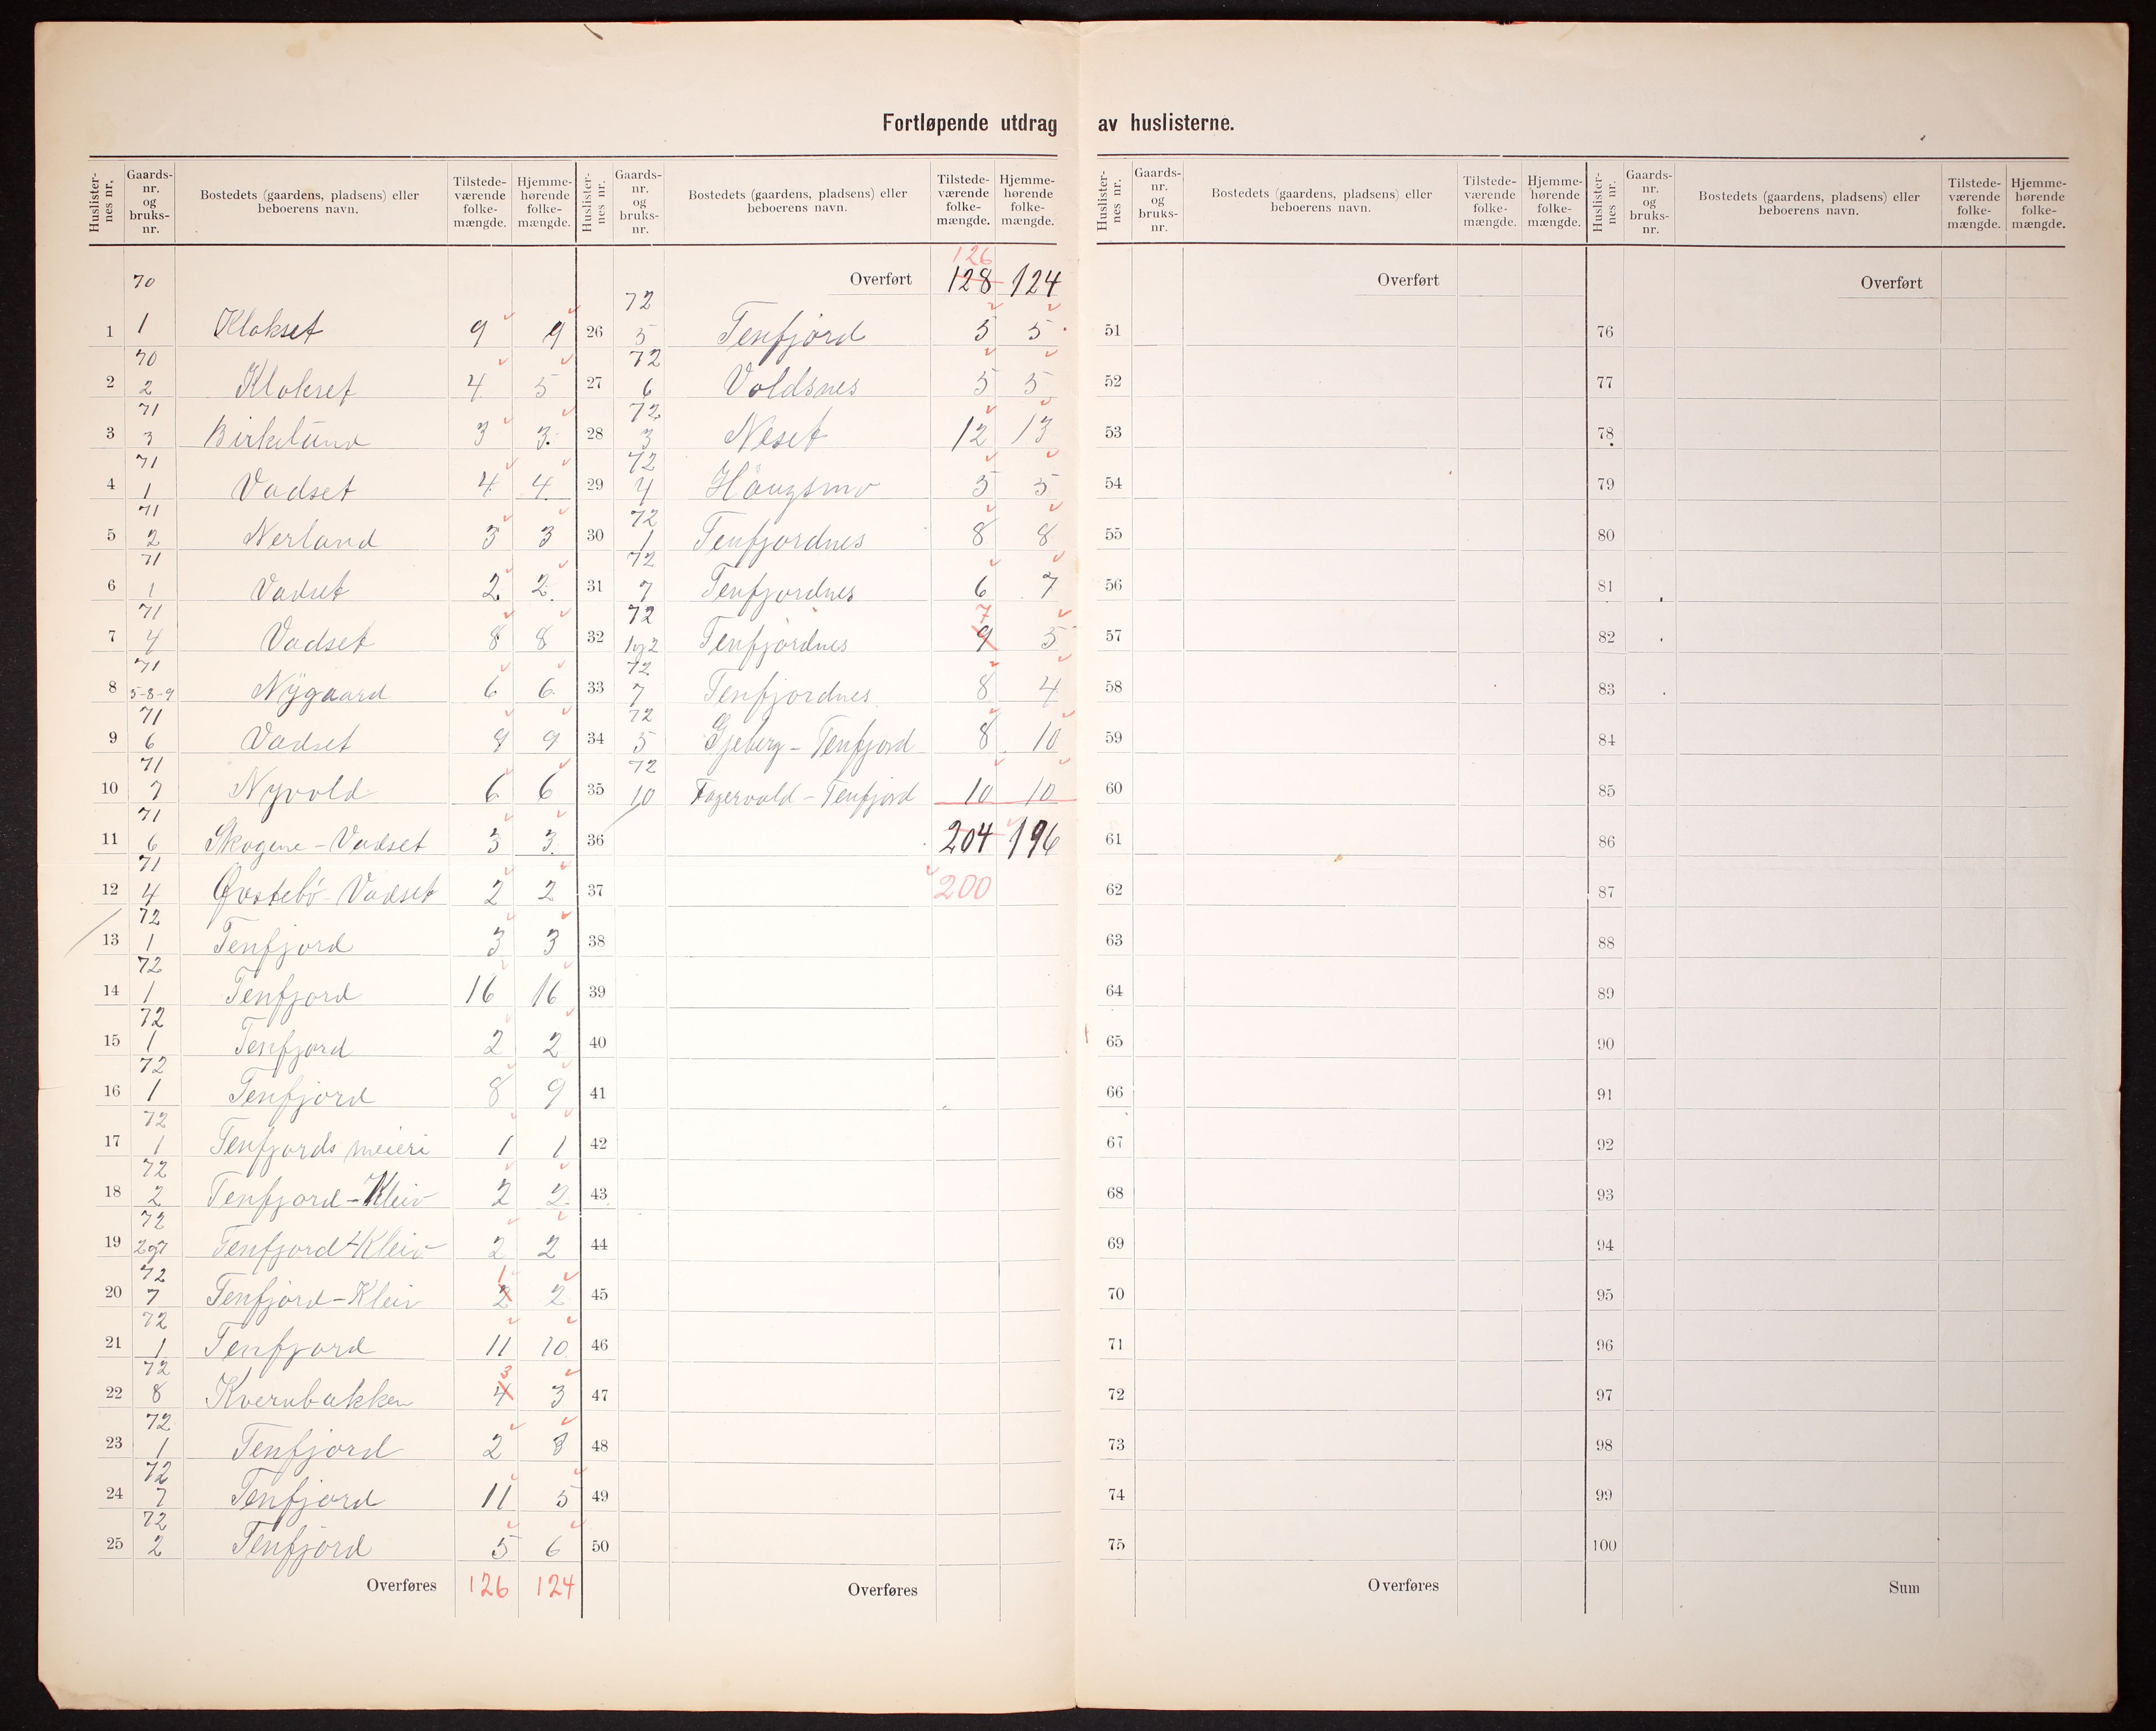 Fortløpende utdrag av huslisterne.
Huslister-nes nr. Gaards-nr. og bruks-nr. Bostedets (gaardens, pladsens) eller beboerens navn. Tilstede-værende folke-mængde. Hjemme-hørende folke-mængde.
70
1 1 Klokset 9 9
70
2 2 Klokset 4 5
71
3 3 Birkelund 3 3
71
4 1 Vadset 4 4
71
5 2 Nerland 3 3
71
6 1 Vadset 2 2
71
7 4 Vadset 8 8
71
8 5-8-9 Nygaard 6 6
71
9 6 Vadset 9 9
71
10 7 Nyvold 6 6
71
11 6 Skogene - Vadset 3 3
71
12 4 Øvstebö - Vadset 2 2
72
13 1 Tenfjord 3 3
72
14 1 Tenfjord 16 16
72
15 1 Tenfjord 2 2
72
16 1 Tenfjord 8 9
72
17 1 Tenfjords meieri 1 1
72
18 2 Tenfjord - Kleiv 2 2
72
19 2 og 7 Tenfjord - Kleiv 2 2
72 1
20 7 Tenfjord - Kleiv 2 2
72
21 1 Tenfjord 11 10
72 3
22 8 Kvernbakken 4 3
72
23 1 Tenfjord 2
72
24 7 Tenfjord 11 5
72
25 2 Tenfjord 5 6
Overføres 126 124
Huslister-nes nr. Gaards-nr. og bruks-nr. Bostedets (gaardens, pladsens) eller beboerens navn. Tilstede-værende folke-mængde. Hjemme-hørende folke-mængde.
126
Overført 128 124
72
26 5 Tenfjord 5 5
72
27 6 Voldsnes 5 5
72
28 3 Neset 12 13
72
29 4 Haugsmo 5 5
72
30 1 Tenfjordnes 8 8
72
31 7 Tenfjordnes 6 7
72 7
32 1 og 2 Tenfjordnes 9 5
72
33 7 Tenfjordnes 8 4
72
34 5 Gjeberg - Tenfjord 8 10
72
35 10 Fagervold - Tenfjord 10 10
36 204 196
37 200
38
39
40
41
42
43
44
45
46
47
48
49
50
Overføres
Huslister-nes nr. Gaards-nr. og bruks-nr. Bostedets (gaardens, pladsens) eller beboerens navn. Tilstede-værende folke-mængde. Hjemme-hørende folke-mængde.
Overført
51
52
53
54
55
56
57
58
59
60
61
62
63
64
65
66
67
68
69
70
71
72
73
74
75
Overføres
Huslister-nes nr. Gaards-nr. og bruks-nr. Bostedets (gaardens, pladsens) eller beboerens navn. Tilstede-værende folke-mængde. Hjemme-hørende folke-mængde.
Overført
76
77
78
79
80
81
82
83
84
85
86
87
88
89
90
91
92
93
94
95
96
97
98
99
100
Sum